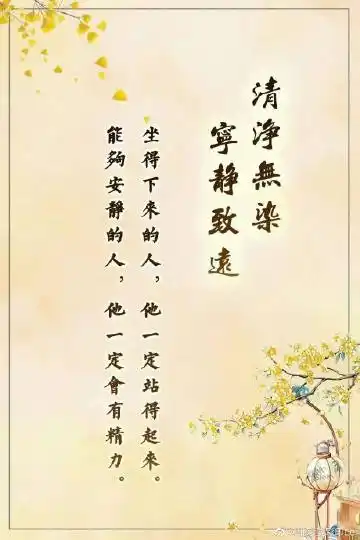 清淨無染
寧靜致遠
坐得下來的人，他一定站得起來。
能夠安靜的人，他一定會有精力。